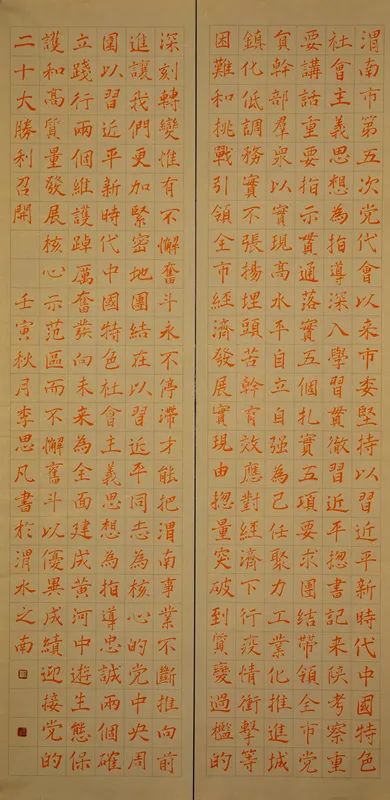 渭南市第五次党代會以来市委堅持以習近平新時代中國特色
社會主義思想為指導深入學習貫徹習近平揔書記来陝考察重
要講話重要指示貫通落實五個扎實五項要求團結帶領全市党
貟幹部羣衆以實現高水平自立自强為己任聚力工業化推進城
鎮化低調務實不張揚埋頭苦幹有效應對經濟下行疫情衝擊等
困難和挑戰引領全市經濟發展實現由揔量突破到質變過檻的
深刻轉變惟有不懈奮斗永不停滯才能把渭南事業不斷推向前
進讓我們更加緊密地團結在以習近平同志為核心的党中央周
圍以習近平新時代中國特色社會主義思想為指導忠誠兩個確
立踐行兩個維護踔厲奮發向未来為全面建成黄河中遊生態保
護和高質量發展核心示范區而不懈奮斗以優異成績迎接党的
二十大勝利召開 壬寅秋月李思凡書於渭水之南